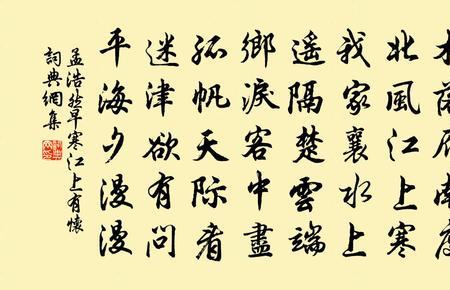 木落雁南度
北風江上寒
我家襄水上
遙隔楚雲端
鄉淚客中盡
孤帆天際看
迷津欲有問
平海夕漫漫
孟浩然早寒江上有懷
詞典網集